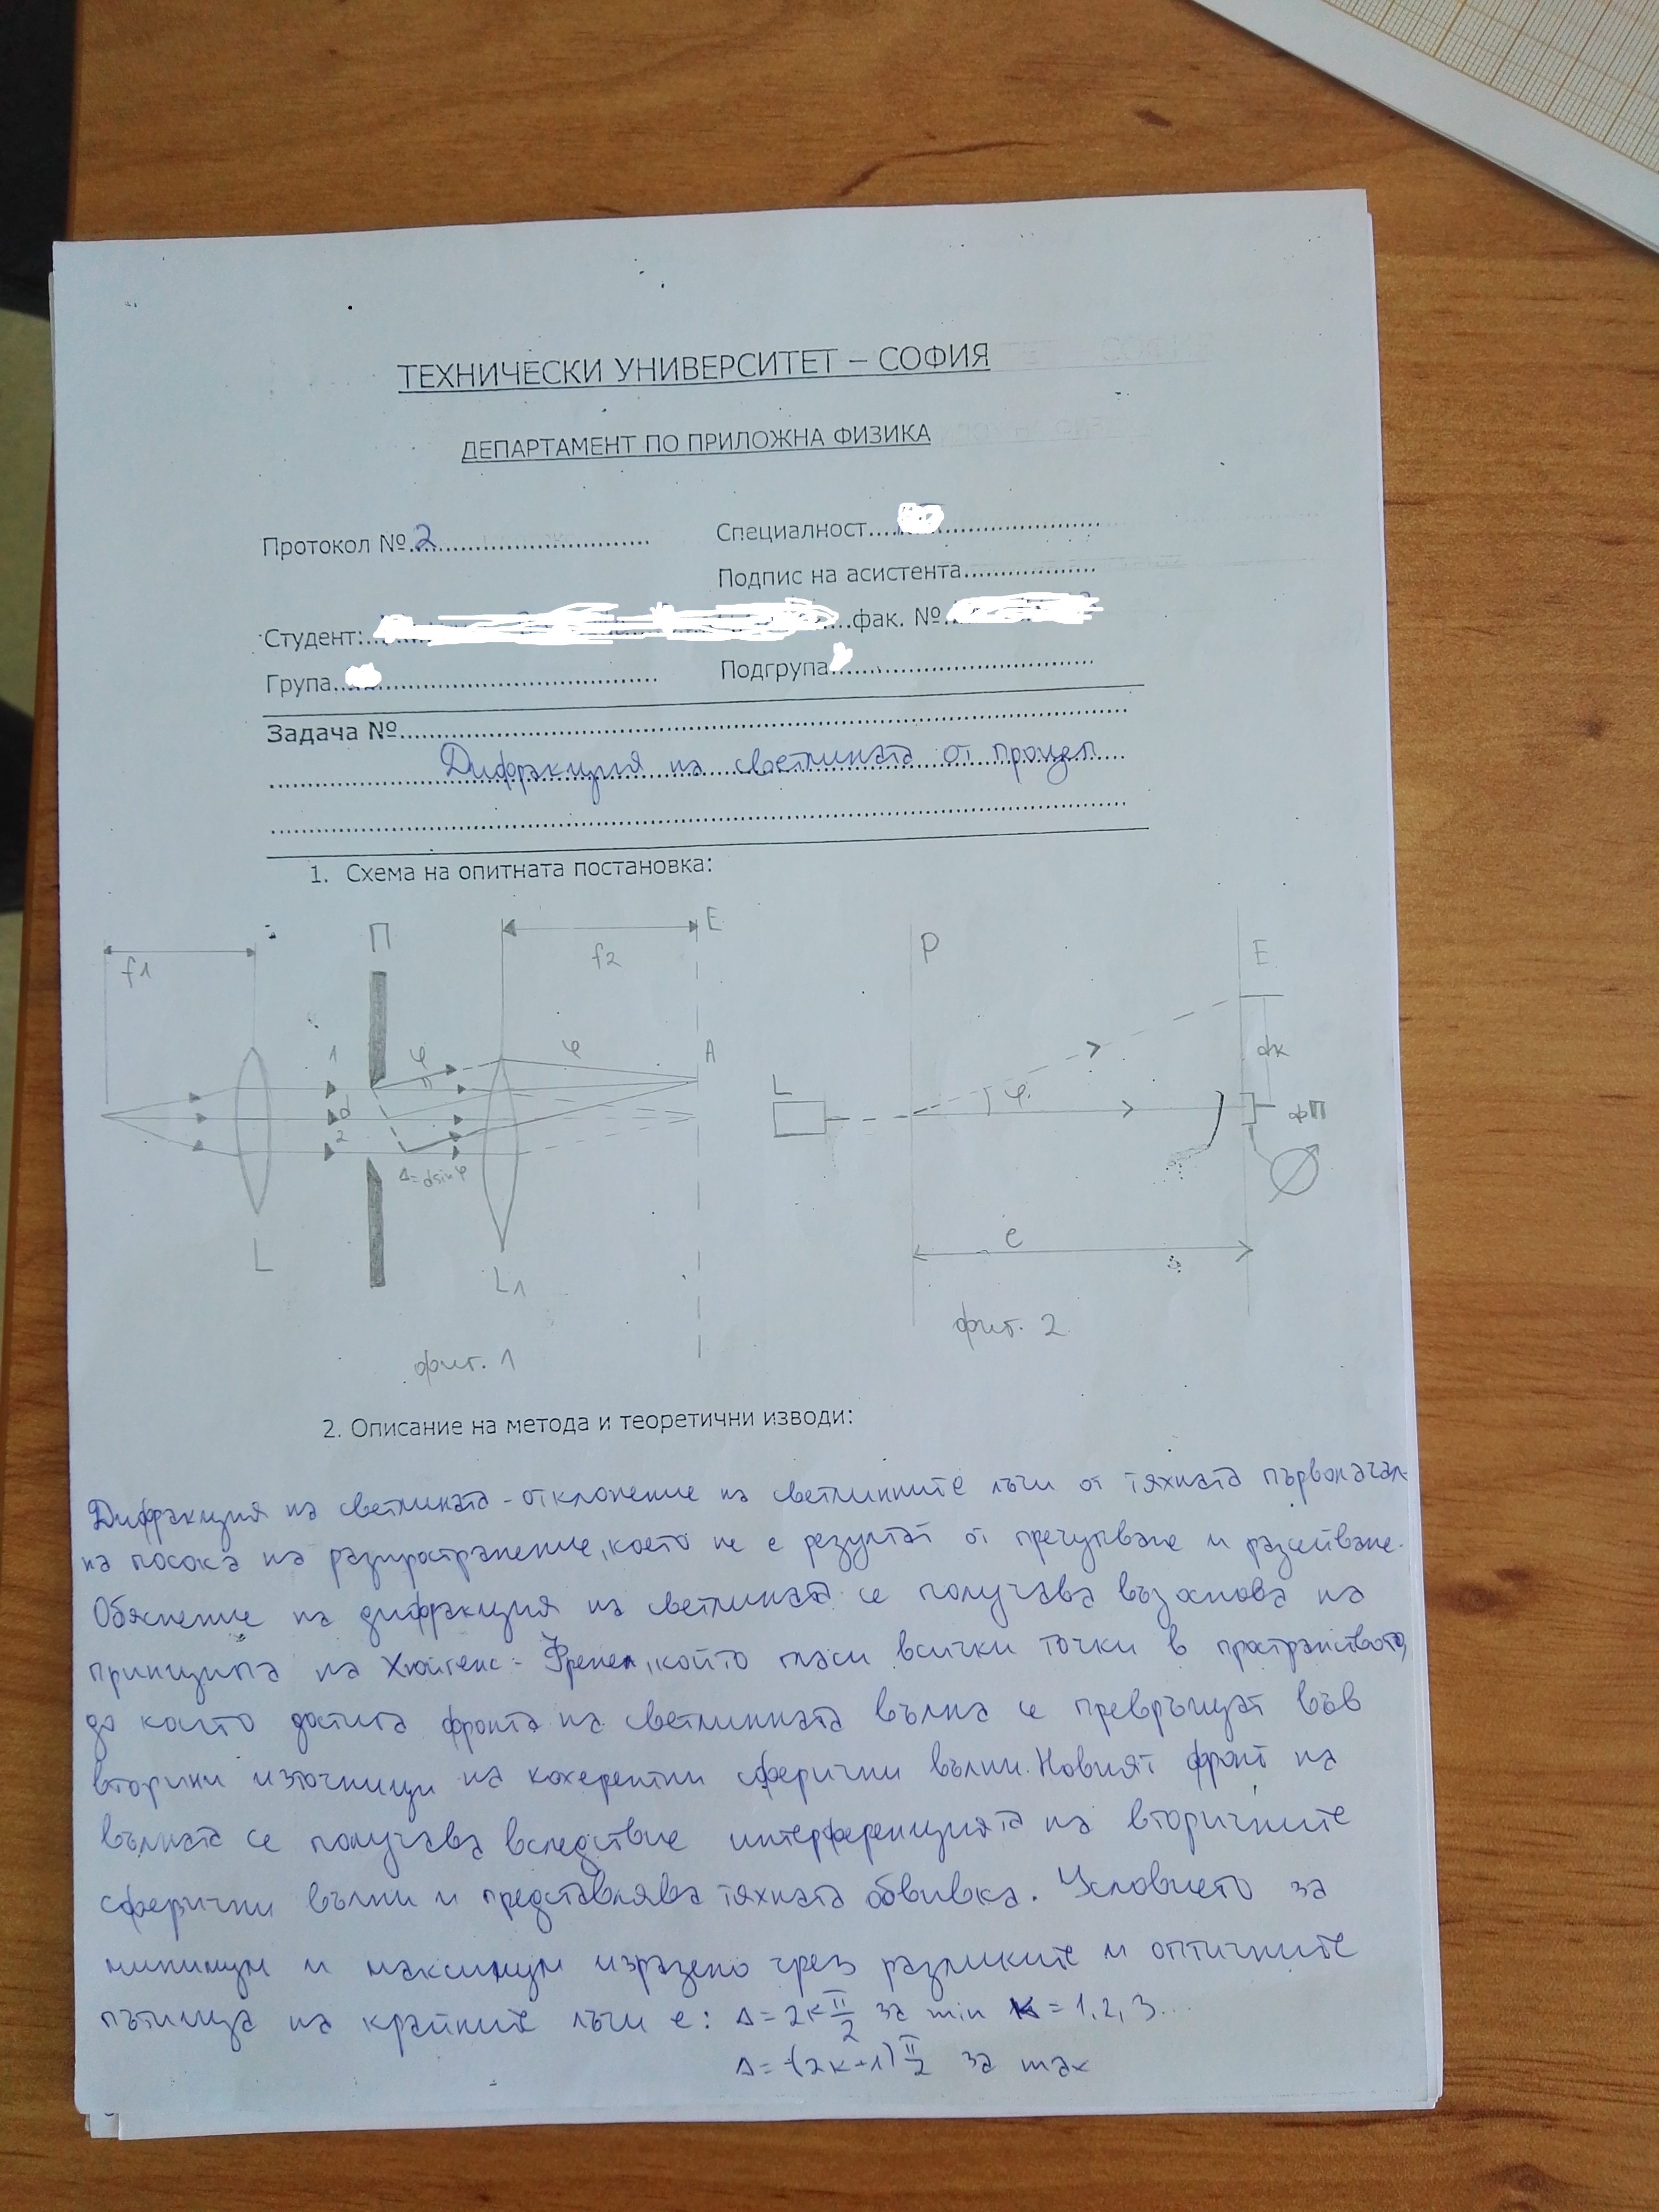 ТЕХНИЧЕСКИ УНИВЕРСИТЕТ – СОФИЯ
ДЕПАРТАМЕНТ ПО ПРИЛОЖНА ФИЗИКА
Протокол №2 Специалност
Подпис на асистента
Студент: фак. №
Група Подгрупа
Задача №
Дифракция на светлината от процеп
1. Схема на опитната постановка:
f1 П f2 E P E
1 φ φ A dк
d L φ. фП
2
Δ=dsinφ
L L1 e
фиг. 1 фиг. 2
2. Описание на метода и теоретични изводи:
Дифракция на светлината - отклонение на светлинните лъчи от тяхната първоначал-
на посока на разпространение, което не е резултат от пречупване и разсейване.
Обяснение на дифракция на светлината се получава възоснова на
принципа на Хюйгенс - Френел, който гласи всички точки в пространството,
до които достига фронта на светлинната вълна се превръщат във
вторични източници на кохерентни сферични вълни. Новият фронт на
вълната се получава вследствие интерференцията на вторичните
сферични вълни и представлява тяхната обвивка. Условието за
минимум и максимум изразено чрез разликите и оптичните
пътища на крайните лъчи е: Δ=2k π/2 за min k=1,2,3...
Δ=(2k+1) π/2 за max